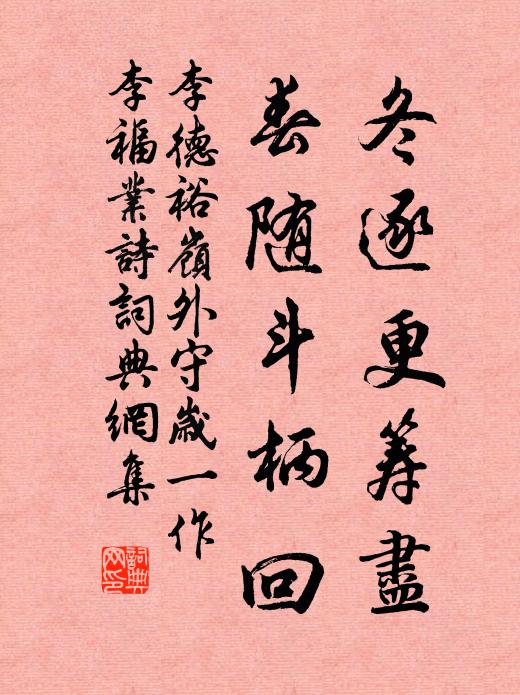 冬逐更筹盡
春随斗柄回
李德裕嶺外守歲一作
李福業詩詞典網集
詞典網印